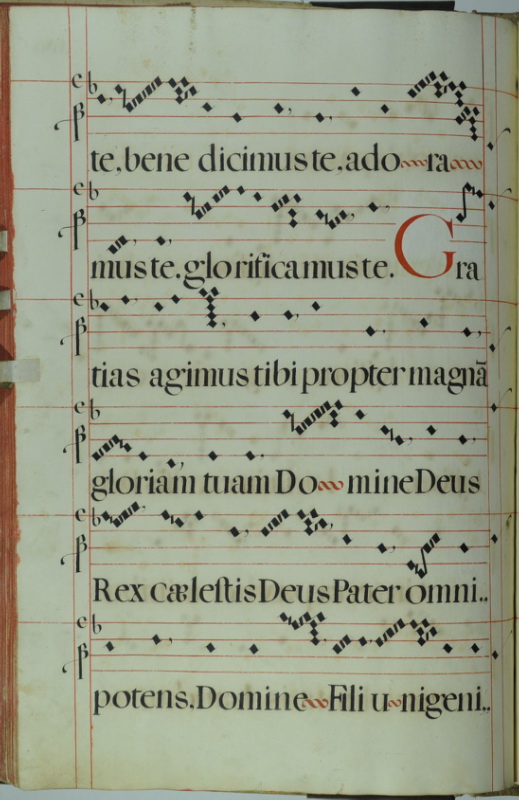 te, bene dicimus te, ado ra
mus te. glorificamus te. Gra
tias agimus tibi propter magnā
gloriam tuam Do mine Deus
Rex cælestis Deus Pater omni..
potens, Domine Fili u nigeni..